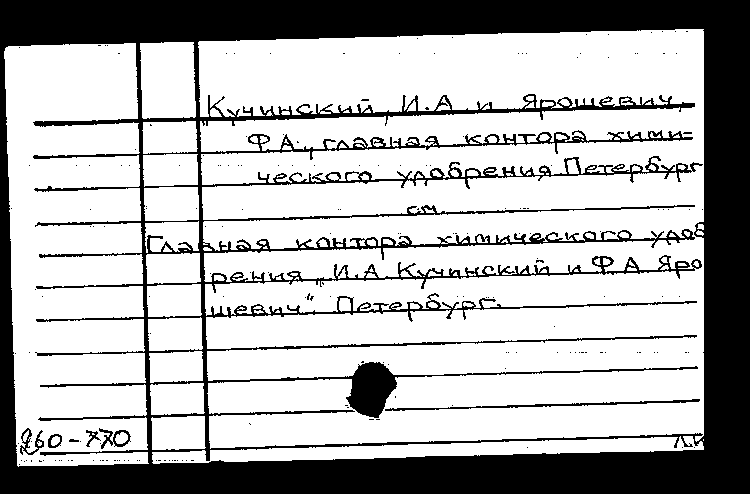 „Кучинский, И.А и Ярошевич,
Ф.А., главная контора хими=
ческого удобрения Петербург
см.
Главная контора химического удоб
рения „И.А. Кучинский и Ф.А Яро
шевич“. Петербург.
260-770
Л.К